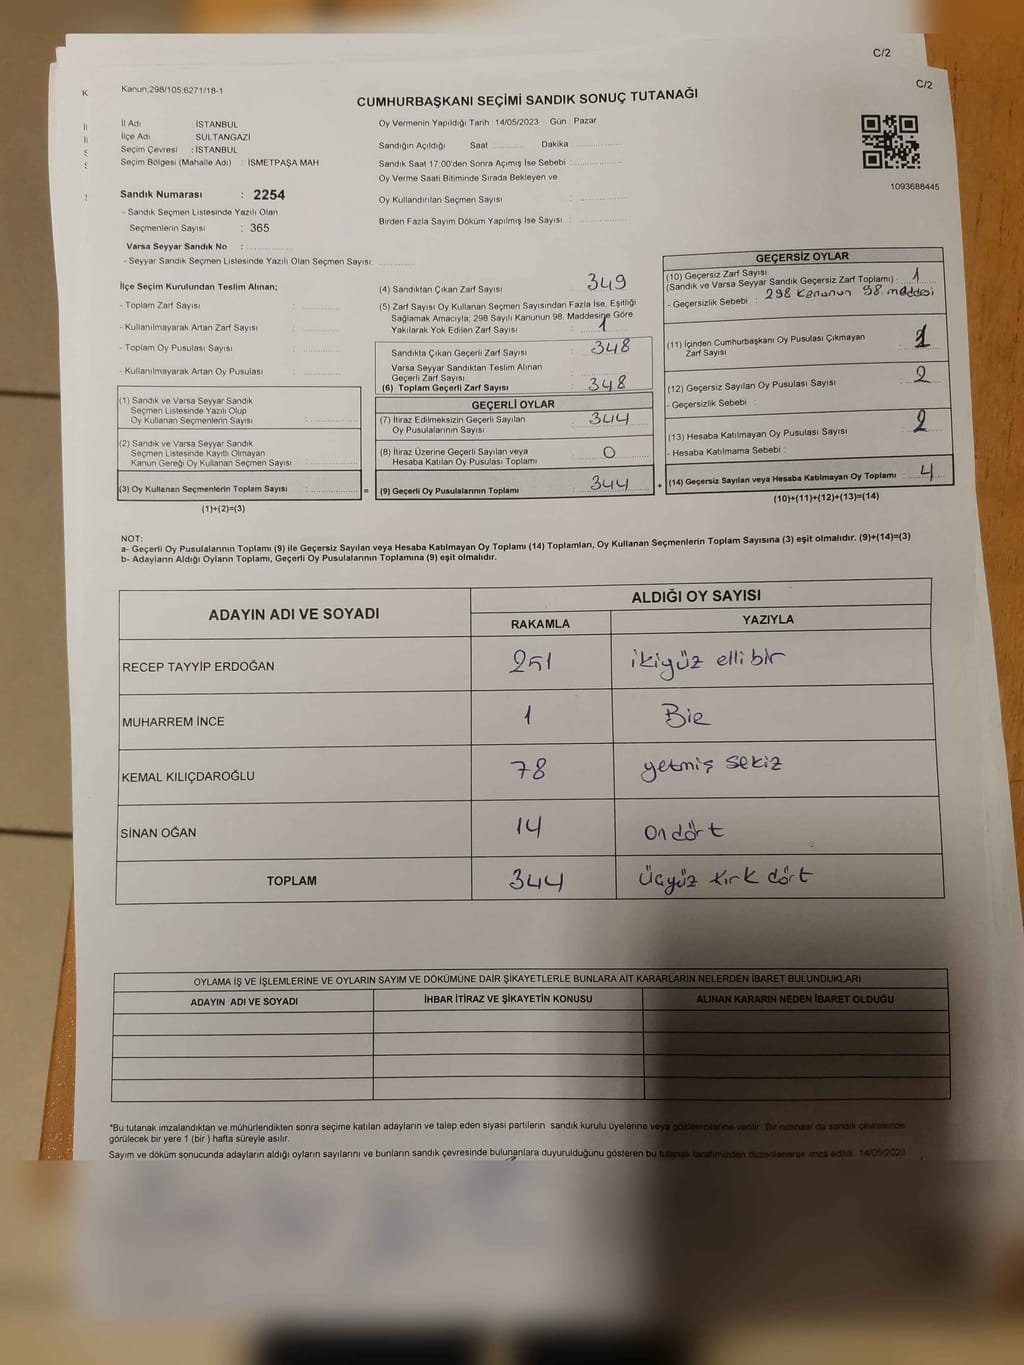 C/2
C/2
Kanun;298/105;6271/18-1
CUMHURBAŞKANI SEÇİMİ SANDIK SONUÇ TUTANAĞI
İl Adı : İSTANBUL
İlçe Adı : SULTANGAZİ
Seçim Çevresi : İSTANBUL
Seçim Bölgesi (Mahalle Adı) : İSMETPAŞA MAH
Sandık Numarası : 2254
- Sandık Seçmen Listesinde Yazılı Olan
Seçmenlerin Sayısı : 365
Varsa Seyyar Sandık No :
- Seyyar Sandık Seçmen Listesinde Yazılı Olan Seçmen Sayısı:
Oy Vermenin Yapıldığı Tarih : 14/05/2023 Gün : Pazar
Sandığın Açıldığı Saat Dakika
Sandık Saat 17:00'den Sonra Açımış İse Sebebi :
Oy Verme Saati Bitiminde Sırada Bekleyen ve
Oy Kullandırılan Seçmen Sayısı :
Birden Fazla Sayım Döküm Yapılmış İse Sayısı :
1093688445
İlçe Seçim Kurulundan Teslim Alınan;
- Toplam Zarf Sayısı :
- Kullanılmayarak Artan Zarf Sayısı :
- Toplam Oy Pusulası Sayısı :
- Kullanılmayarak Artan Oy Pusulası :
(1) Sandık ve Varsa Seyyar Sandık
Seçmen Listesinde Yazılı Olup
Oy Kullanan Seçmenlerin Sayısı :
(2) Sandık ve Varsa Seyyar Sandık
Seçmen Listesinde Kayıtlı Olmayan
Kanun Gereği Oy Kullanan Seçmen Sayısı :
(3) Oy Kullanan Seçmenlerin Toplam Sayısı :
(1)+(2)=(3)
(4) Sandıktan Çıkan Zarf Sayısı : 349
(5) Zarf Sayısı Oy Kullanan Seçmen Sayısından Fazla İse, Eşitliği
Sağlamak Amacıyla; 298 Sayılı Kanunun 98. Maddesine Göre
Yakılarak Yok Edilen Zarf Sayısı : 1
Sandıkta Çıkan Geçerli Zarf Sayısı : 348
Varsa Seyyar Sandıktan Teslim Alınan
Geçerli Zarf Sayısı
(6) Toplam Geçerli Zarf Sayısı : 348
GEÇERLİ OYLAR
(7) İtiraz Edilmeksizin Geçerli Sayılan
Oy Pusulalarının Sayısı : 344
(8) İtiraz Üzerine Geçerli Sayılan veya
Hesaba Katılan Oy Pusulası Toplamı : 0
= (9) Geçerli Oy Pusulalarının Toplamı : 344
GEÇERSİZ OYLAR
(10) Geçersiz Zarf Sayısı
(Sandık ve Varsa Seyyar Sandık Geçersiz Zarf Toplamı) : 1
- Geçersizlik Sebebi : 298 Kanunun 98. maddesi
(11) İçinden Cumhurbaşkanı Oy Pusulası Çıkmayan
Zarf Sayısı : 1
(12) Geçersiz Sayılan Oy Pusulası Sayısı : 2
- Geçersizlik Sebebi :
(13) Hesaba Katılmayan Oy Pusulası Sayısı : 2
- Hesaba Katılmama Sebebi :
+ (14) Geçersiz Sayılan veya Hesaba Katılmayan Oy Toplamı : 4
(10)+(11)+(12)+(13)=(14)
NOT:
a- Geçerli Oy Pusulalarının Toplamı (9) ile Geçersiz Sayılan veya Hesaba Katılmayan Oy Toplamı (14) Toplamları, Oy Kullanan Seçmenlerin Toplam Sayısına (3) eşit olmalıdır. (9)+(14)=(3)
b- Adayların Aldığı Oyların Toplamı, Geçerli Oy Pusulalarının Toplamına (9) eşit olmalıdır.
ADAYIN ADI VE SOYADI
ALDIĞI OY SAYISI
RAKAMLA YAZIYLA
RECEP TAYYİP ERDOĞAN 251 ikiyüz elli bir
MUHARREM İNCE 1 Bir
KEMAL KILIÇDAROĞLU 78 yetmiş sekiz
SİNAN OĞAN 14 On dört
TOPLAM 344 üçyüz kırk dört
OYLAMA İŞ VE İŞLEMLERİNE VE OYLARIN SAYIM VE DÖKÜMÜNE DAİR ŞİKAYETLERLE BUNLARA AİT KARARLARIN NELERDEN İBARET BULUNDUKLARI
ADAYIN ADI VE SOYADI İHBAR İTİRAZ VE ŞİKAYETİN KONUSU ALINAN KARARIN NEDEN İBARET OLDUĞU
*Bu tutanak imzalandıktan ve mühürlendikten sonra seçime katılan adayların ve talep eden siyasi partilerin sandık kurulu üyelerine veya gözlemcilerine verilir. Bir nüshası da sandık çevresinde
görülecek bir yere 1 (bir ) hafta süreyle asılır.
Sayım ve döküm sonucunda adayların aldığı oyların sayılarını ve bunların sandık çevresinde bulunanlara duyurulduğunu gösteren bu tutanak tarafımızdan düzenlenerek imza edildi. 14/05/2023